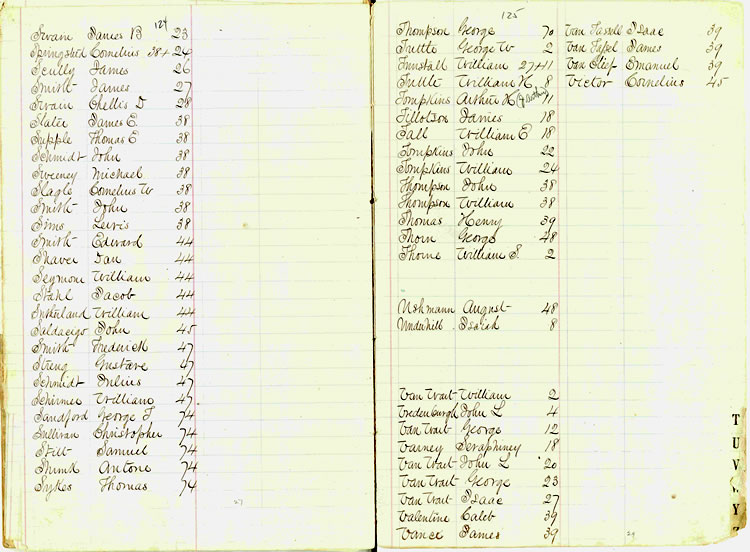 124
Swain James B 23
Springsted Cornelius 38+24
Scully James 26
Smith James 27
Swain Chellis D 28
Slater James E. 38
Supple Thomas E 38
Schmidt John 38
Sweeney Michael 38
Slagle Cornelius W 38
Smith John 38
Sims Lewis 38
Smith Edward 44
Shaver Dan 44
Seymour William 44
Stahl Jacob 44
Sutherland William 44
John 45
Smith Frederick 47
Streng Gustave 47
Schmidt Julius 47
Schirmer William 47
Sandford George F 74
Sullivan Christopher 74
Still Samuel 74
Antone 74
Sykes Thomas 74
125
Thompson George 70
Tuttle George W 2
Tunstall William 27+11
Tuttle William H. 8
Tompkins Arthur H 11
Tillotson James 18
Tall William E 18
Tompkins John 22
Tompkins William 24
Thompson John 38
Thompson William 38
Thomas Henry 39
Thorn George 48
Thorne William S. 2
August 48
Underhill 8
Van Wart William 2
Vredenburgh John L 4
Van Wart George 12
Varney Seraphiney 18
Van Wart John L 20
Van Wart George 23
Van Wart Isaac 27
Valentine Caleb 39
Vance James 39
Van Tassell Isaac 39
Van Tassel James 39
Van Clief Emanuel 39
Victor Cornelius 45
T
U
V
W
Y